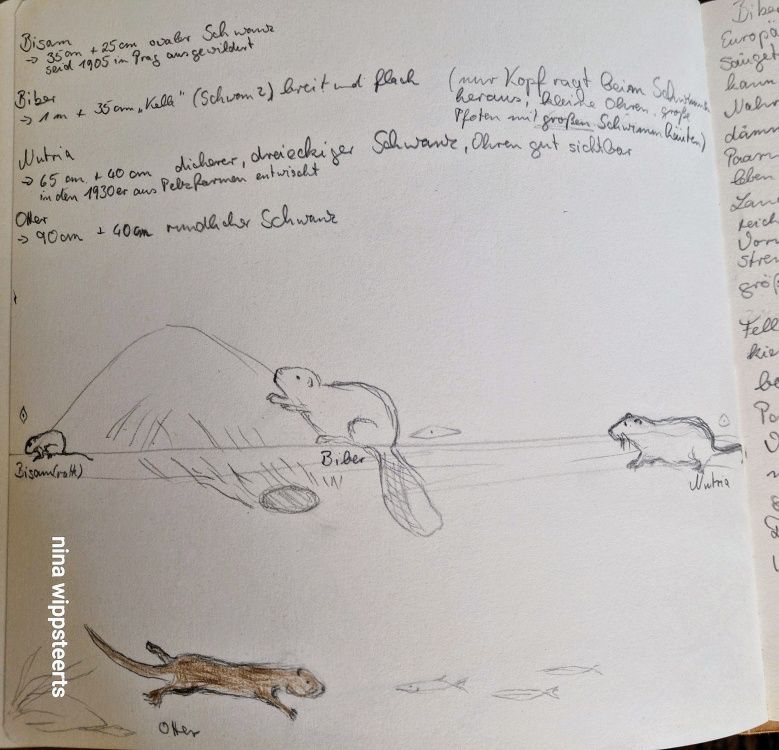 Bisam
→ 35cm + 25cm ovaler Schwanz
seid 1905 in Prag ausgewildert
Biber
→ 1m + 35cm „Kelle" (Schwanz) breit und flach
(nur Kopf ragt beim
heraus, kleine Ohren, große
Pfoten mit großen Schwimmhäuten)
Nutria
→ 65 cm + 40 cm dickerer, dreieckiger Schwanz, Ohren gut sichtbar
in den 1930er aus Pelzfarmen entwischt
Otter
→ 90cm + 40cm rundlicher Schwanz
Bisam(ratte)
Biber
Nutria
Otter
nina wippsteerts
Biber
Europä
Säuget
kann
däm
Paar
leben
Fell